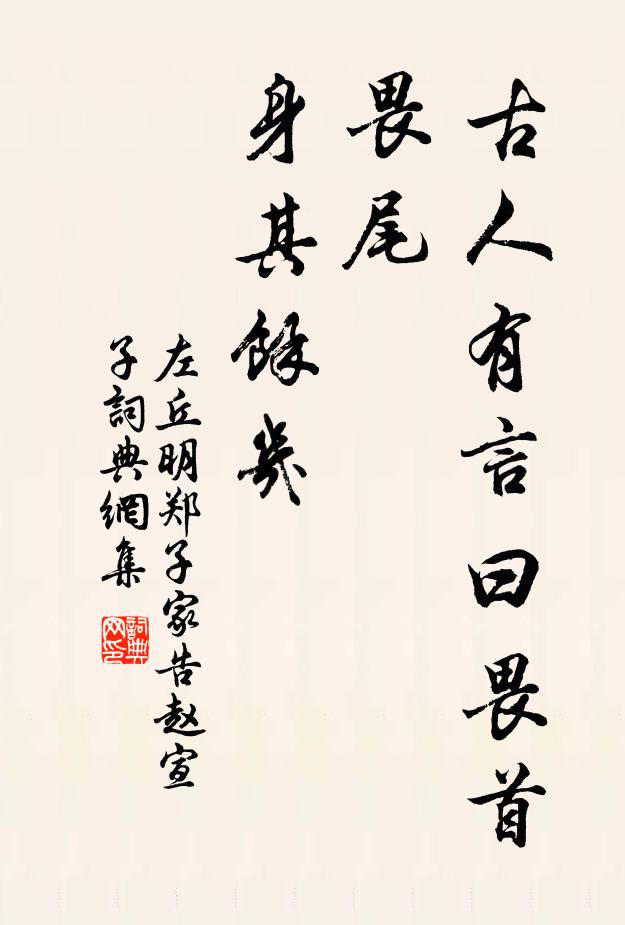 古人有言曰畏首
畏尾
身其餘幾
左丘明郑子家告赵宣
子詞典網集
詞典
网印